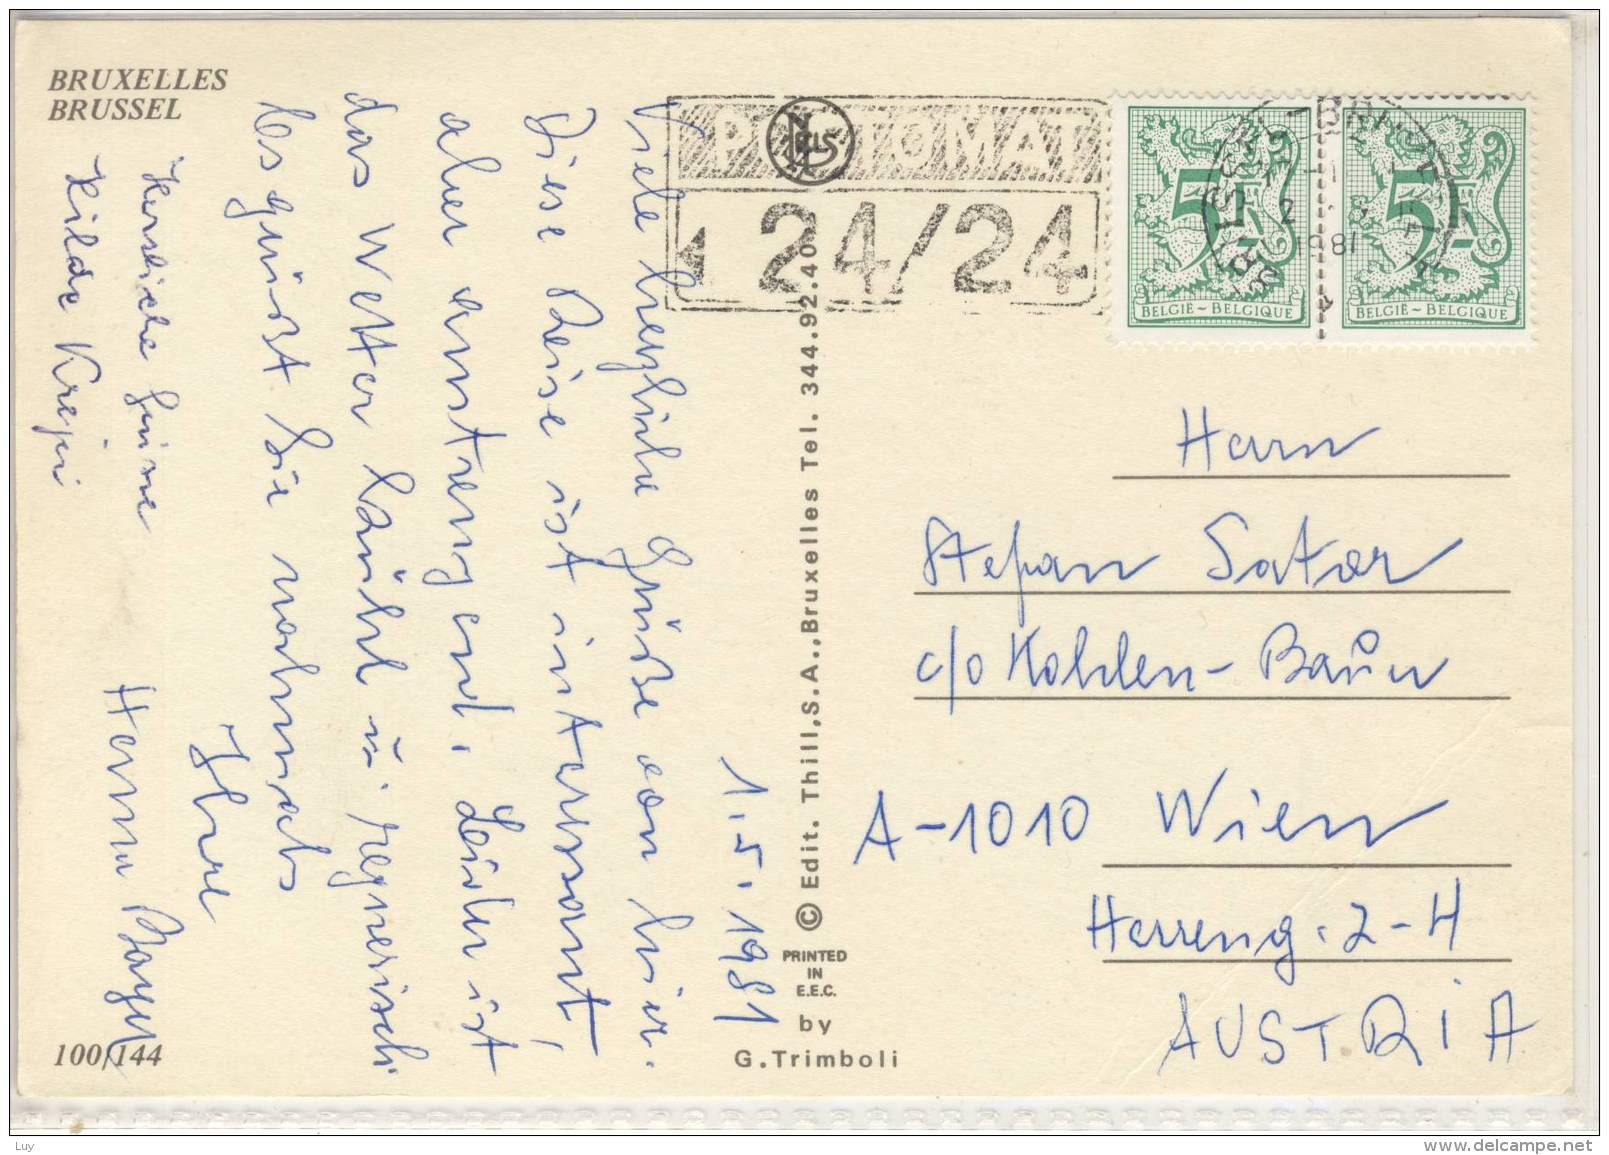 BRUXELLES
BRUSSEL
1.5.1981
Viele herzliche Grüße von hier.
Diese Reise ist interssant,
aber anstrengend. Leider ist
das Wetter kühl u. regnerisch.
Es grüßt Sie nochmals
Ihre
Herma Bayer
Herzliche Grüsse
Hilde Krejci
100/144
© Edit. Thill, S.A., Bruxelles Tel. 344.92.40
PRINTED
IN
E.E.C.
by
G. Trimboli
NELS
POSTOMAT
24/24
1981
5F
BELGIË - BELGIQUE
5F
BELGIË - BELGIQUE
Herrn
Stefan Sator
c/o Kohlen-Baun
A-1010 Wien
Herreng. 2-4
AUSTRIA
Luy
www.delcampe.net